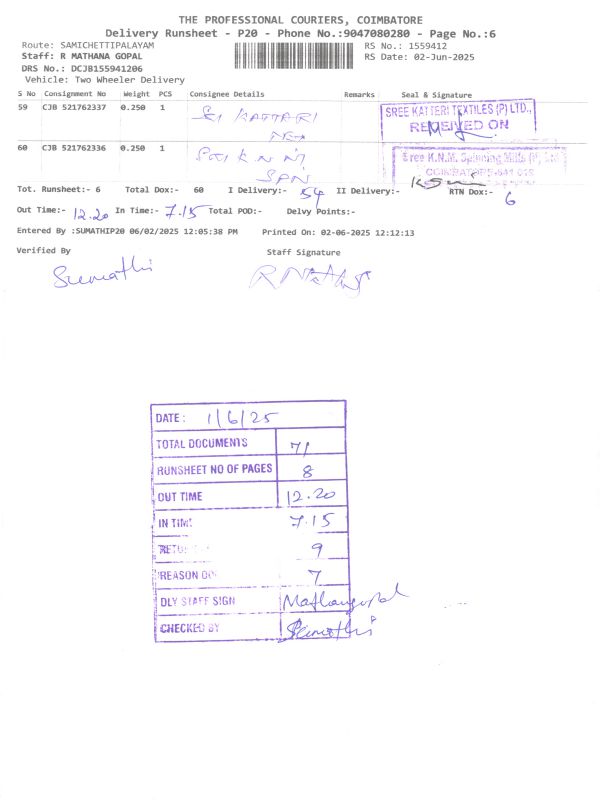 THE PROFESSIONAL COURIERS, COIMBATORE
Delivery Runsheet - P20 - Phone No.:9047080280 - Page No.:6
Route: SAMICHETTIPALAYAM RS No.: 1559412
Staff: R MATHANA GOPAL RS Date: 02-Jun-2025
DRS No.: DCJB155941206
Vehicle: Two Wheeler Delivery
S No Consignment No Weight PCS Consignee Details Remarks Seal & Signature
59 CJB 521762337 0.250 1 SRI KATTARI
SREE KATTERI TEXTILES (P) LTD.,
RECEIVED ON
60 CJB 521762336 0.250 1 SRI K N M
SPN
Sree K.N.M. Spinning Mills (P) Ltd
COIMBATORE-641 018
Tot. Runsheet:- 6 Total Dox:- 60 I Delivery:- 54 II Delivery:- RTN Dox:- 6
Out Time:- 12.20 In Time:- 7.15 Total POD:- Delvy Points:-
Entered By :SUMATHIP20 06/02/2025 12:05:38 PM Printed On: 02-06-2025 12:12:13
Verified By Staff Signature
Sumathi
DATE: 1/6/25
TOTAL DOCUMENTS 71
RUNSHEET NO OF PAGES 8
OUT TIME 12.20
IN TIME 7.15
RETU 9
REASON DO 7
DLY STAFF SIGN Mathangopal
CHECKED BY Sumathi